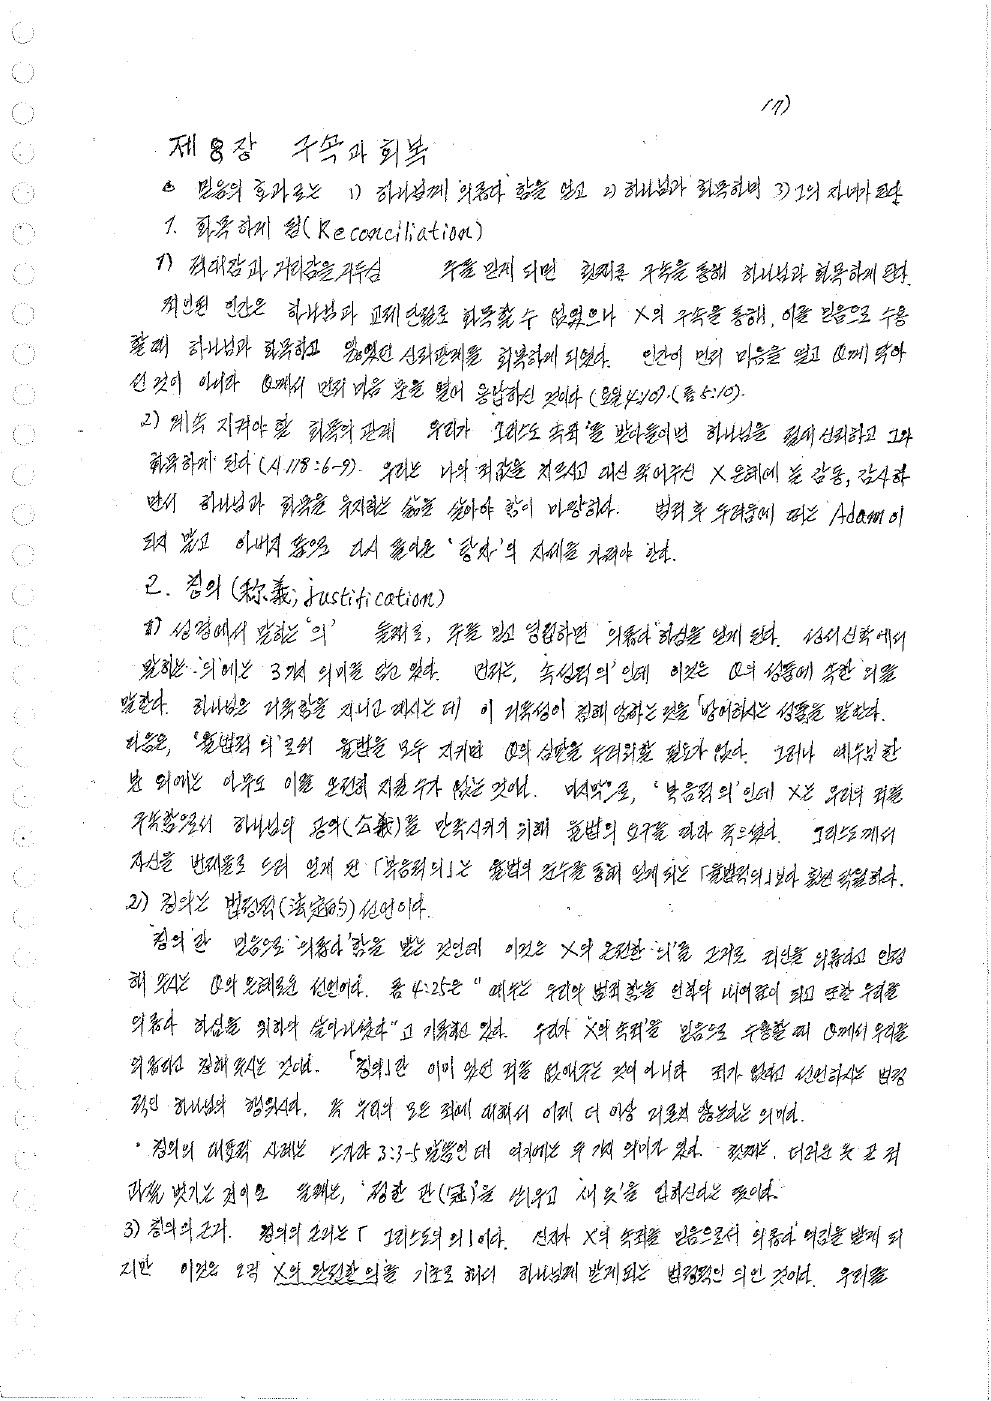 17)
제 8 장 구속과 회복
⊙ 믿음의 효과로는 1) 하나님께 '의롭다' 함을 얻고 2) 하나님과 화목하며 3) 그의 자녀가 된다.
1. 화목하게 됨(Reconciliation)
1) 적대감과 거리감을 거두심 주를 믿게 되면 첫째로 구속을 통해 하나님과 화목하게 된다.
죄인된 인간은 하나님과 교제 단절로 화목할 수 없었으나 X의 구속을 통해, 이를 믿음으로 수용
할 때 하나님과 화목하고 잃었던 신뢰관계를 회복하게 되었다. 인간이 먼저 마음을 열고 Q께 나아
선 것이 아니라 Q께서 먼저 마음 문을 열어 응답하신 것이다 (요일 4:10).(롬 5:10).
2) 계속 지켜야 할 화목의 관계 우리가 '그리스도 속죄'를 받아들이면 하나님을 절대 신뢰하고 그와
화목하게 된다 (시 118:6-9). 우리는 나의 죄값을 치르시고 대신 죽어주신 X 은혜에 늘 감동, 감사하
면서 하나님과 화목을 유지하는 삶을 살아야 함이 마땅하다. 범죄 후 두려움에 떠는 Adam이
되지 말고 아버지 품으로 다시 돌아온 '탕자'의 자세를 가져야 한다.
2. 칭의 (称義; justification)
1) 성경에서 말하는 '의' 둘째로, 주를 믿고 영접하면 '의롭다' 하심을 얻게 된다. 성서신학에서
말하는 '의'에는 3가지 의미를 담고 있다. 먼저는, '속성적 의'인데 이것은 Q의 성품에 속한 의를
말한다. 하나님은 거룩함을 지니고 계시는 데 이 거룩성이 침해 당하는 것을 「방어하시는 성품」을 말한다.
다음은, '율법적 의'로서 율법을 모두 지키면 Q의 심판을 두려워할 필요가 없다. 그러나 예수님 한
분 외에는 아무도 이를 온전히 지킬 수가 없는 것이다. 마지막으로, '복음적 의'인데 X는 우리의 죄를
구속함으로서 하나님의 공의(公義)를 만족시키기 위해 율법의 요구를 따라 죽으셨다. 그리스도께서
자신을 번제물로 드려 얻게 된 「복음적 의」는 율법의 준수를 통해 얻게 되는 「율법적 의」보다 훨씬 탁월하다.
2) 칭의는 법정적(法定的) 선언이다.
'칭의'란 믿음으로 '의롭다' 함을 받는 것인데 이것은 X의 온전한 '의'를 근거로 죄인을 의롭다고 인정
해 주시는 Q의 은혜로운 선언이다. 롬 4:25은 "예수는 우리의 범죄함을 인하여 내어줌이 되고 또한 우리를
의롭다 하심을 위하여 살아나셨다"고 기록하고 있다. 우리가 X의 속죄를 믿음으로 수용할 때 Q께서 우리를
의롭다고 칭해 주시는 것이다. 「칭의」란 이미 있던 죄를 없애주는 것이 아니라 죄가 없다고 선언하시는 법정
적인 하나님의 행위시다. 즉 우리의 모든 죄에 대해서 이제 더 이상 거론치 않는다는 의미다.
• 칭의의 대표적 사례는 스가랴 3:3-5 말씀인데 여기에는 두 가지 의미가 있다. 첫째는, 더러운 옷 곧 죄
과를 벗기는 것이요 둘째는, '정한 관(冠)'을 씌우고 '새 옷'을 입히신다는 뜻이다.
3) 칭의의 근거. 칭의의 근거는 「그리스도의 의」이다. 신자가 X의 속죄를 믿음으로서 '의롭다' 여김을 받게 되
지만 이것은 오직 X의 완전한 의를 기초로 하여 하나님께 받게 되는 법정적인 의인 것이다. 우리를